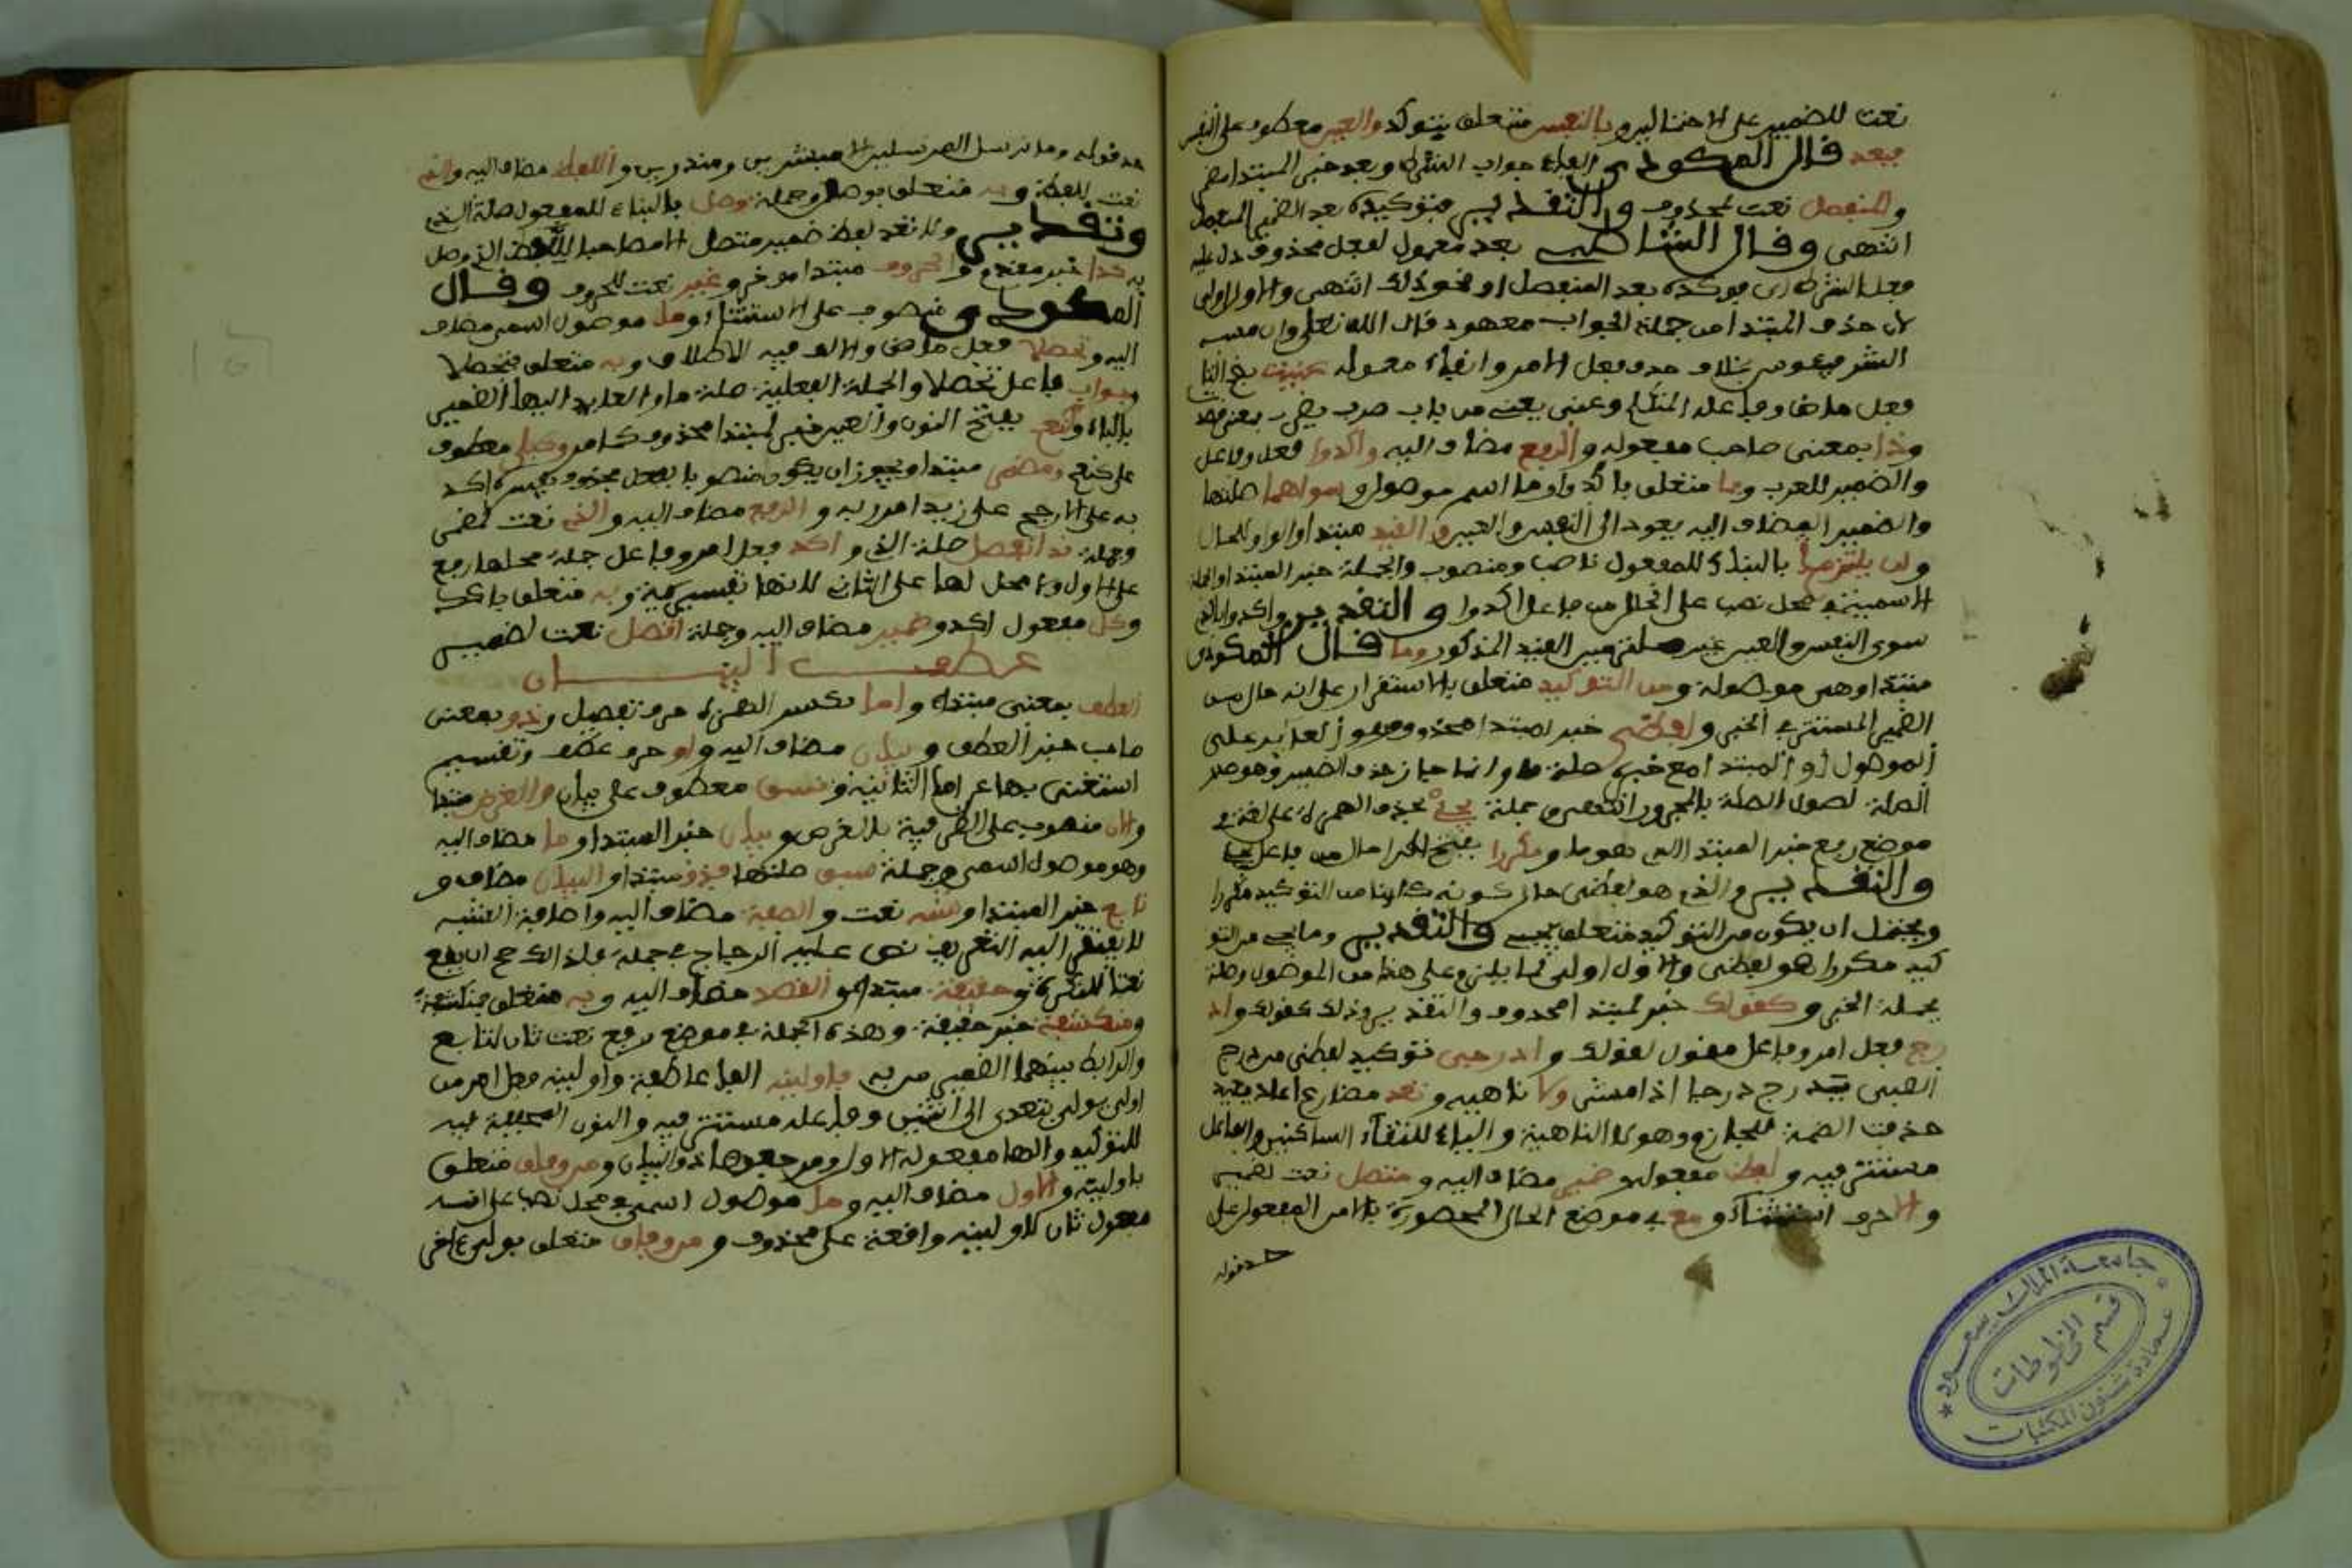 نعت للضمير على الاختيار وبالنفس متعلق بتؤكد والعين معطوف على النفس
فبعد قال المكودي الفاء جواب الشرط وبعد خبر المبتدا مضمر
والمنفصل نعت لمحذوف والتقدير فتوكيده بعد الضمير المنفصل
انتهى وقال الشاطبي بعد معمول لفعل محذوف دل عليه
فعل الشرط اي فوكده بعد المنفصل او نحو ذلك انتهى والاول اولى
لان حذف المبتدا من جملة الجواب معهود قال الله تعلى وان مسه
الشر فيئوس بخلاف حذف فعل الامر وابقاء معموله عنيت
فعل ماض وفاعله المتكلم وعنى يعني من باب ضرب يضرب بمعنى قصد
وذا بمعنى صاحب مفعوله والرفع مضاف اليه واكدوا فعل وفاعل
والضمير للعرب وبما متعلق باكدوا وما اسم موصول وسواهما صلتها
والضمير المضاف اليه يعود الى النفس والعين والقيد مبتدا والواو للحال
ولن يلتزما بالبناء للمفعول ناصب ومنصوب والجملة خبر المبتدا والجملة
الاسمية في محل نصب على الحال من فاعل اكدوا والتقدير واكدوا بالذي
سوى النفس والعين غير ملتزمين القيد المذكور وما قال المكودي
مبتدا وهي موصولة ومن التوكيد متعلق بالاستقرار على انه حال من
الضمير المستتر في الخبر ولفظي خبر لمبتدا محذوف وهو العائد على
الموصول والمبتدا مع خبره صلة ما وانما جاز حذف الضمير وهو صدر
الصلة لطول الصلة بالمجرور انتهى وجملة يجي بحذف الهمزة على لغة في
موضع رفع خبر المبتدا الذي هو ما ومكررا بفتح الراء حال من فاعل يجي
والتقدير والذي هو لفظي حال كونه كائنا من التوكيد يجي مكررا
ويحتمل ان يكون من التوكيد متعلق بيجي والتقدير وما يجي من التو
كيد مكررا هو لفظي والاول اولى لما يلزم على هذا من الموصول وصلته
بجملة الخبر وكقولك خبر لمبتدا محذوف والتقدير وذلك كقولك واد
رج فعل امر وفاعل مقول لقولك وادرجي توكيد لفظي من درج
الصبي يدرج درجا اذا مشى ولا ناهية وتعد مضارع اعاد يعيد
حذفت الضمة للجازم وهو لا الناهية والياء لالتقاء الساكنين والفاعل
مستتر فيه ولفظ مفعوله وضمير مضاف اليه ومتصل نعت لضمير
والا حرف استثناء ومع في موضع الحال المحصورة بالا من المفعول على
حد قوله
حد قوله وما نرسل المرسلين الا مبشرين ومنذرين واللفظ مضاف اليه والذي
نعت للفظ وبه متعلق بوصل وجملة وصل بالبناء للمفعول صلة الذي
وتقديره ولا تعد لفظ ضمير متصل الا مصاحبا للفظ الذي وصل
به كذا خبر مقدم والحروف مبتدا مؤخر وغير نعت للحروف وقال
المكودي منصوب على الاستثناء وما موصول اسمي مضاف
اليه وتحصلا فعل ماض والالف فيه للاطلاق وبه متعلق بتحصلا
وجواب فاعل تحصلا والجملة الفعلية صلة ما والعائد اليها الضمير
بالباء وكنعم بفتح النون والعين خبر لمبتدا محذوف كما مر وكبلى معطوف
على كنعم ومضمر مبتدا ويجوز ان يكون منصوبا بفعل محذوف يفسره اكد
به على الارجح على زيدا امرر به والرفع مضاف اليه والذي نعت لمضمر
وجملة قد انفصل صلة الذي واكد فعل امر وفاعل جملة محلها رفع
على الاول ولا محل لها على الثاني لانها تفسيرية وبه متعلق باكد
وكل مفعول اكد وضمير مضاف اليه وجملة اتصل نعت لضمير
عطف البيان
العطف بمعنى مبتدا واما بكسر الهمزة حرف تفصيل وذو بمعنى
صاحب خبر العطف وبيان مضاف اليه واو حرف عطف وتقسيم
استغنى بها عن اما الثانية ونسق معطوف على بيان والغرض مبتدا
والان منصوب على الظرفية بالغرض وبيان خبر المبتدا وما مضاف اليه
وهو موصول اسمي وجملة سبق صلتها فذو مبتدا والبيان مضاف و
تابع خبر المبتدا وشبه نعت والصفة مضاف اليه واضافة الشبه
لا يقتضي اليه التعريف نص عليه الزجاج في جمله فلذلك صح ان يقع
نعتا للنكرة وحقيقة مبتدا والقصد مضاف اليه وبه متعلق بمنكشفة
ومنكشفة خبر حقيقة وهذه الجملة في موضع رفع نعت ثان لتابع
والرابط بينهما الضمير من به فاولينه الفاء عاطفة واولينه فعل امر من
اولى يولي يتعدى الى اثنين وفاعله مستتر فيه والنون الخفيفة فيه
للتوكيد والهاء مفعوله الاول ومرجعها ذو البيان ومن وفاق متعلق
باولينه والاول مضاف اليه وما موصول اسمي في محل نصب على انه
مفعول ثان لاولينه واقعة على محذوف ومن وفاق متعلق بولي في اخر
جامعة الملك سعود
قسم المخطوطات
عمادة شئون المكتبات